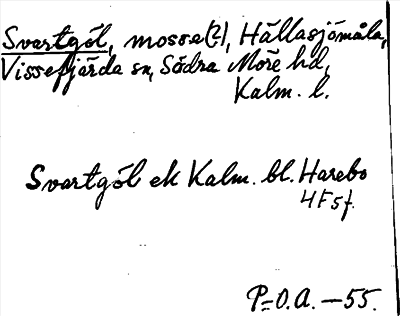 Svartgöl, mosse(?), Hällasjömåla,
Vissefjärda sn, Södra Möre hd,
Kalm. l.
Svartgöl ek Kalm. bl. Harebo
4F5f.
P=O.A.—55.